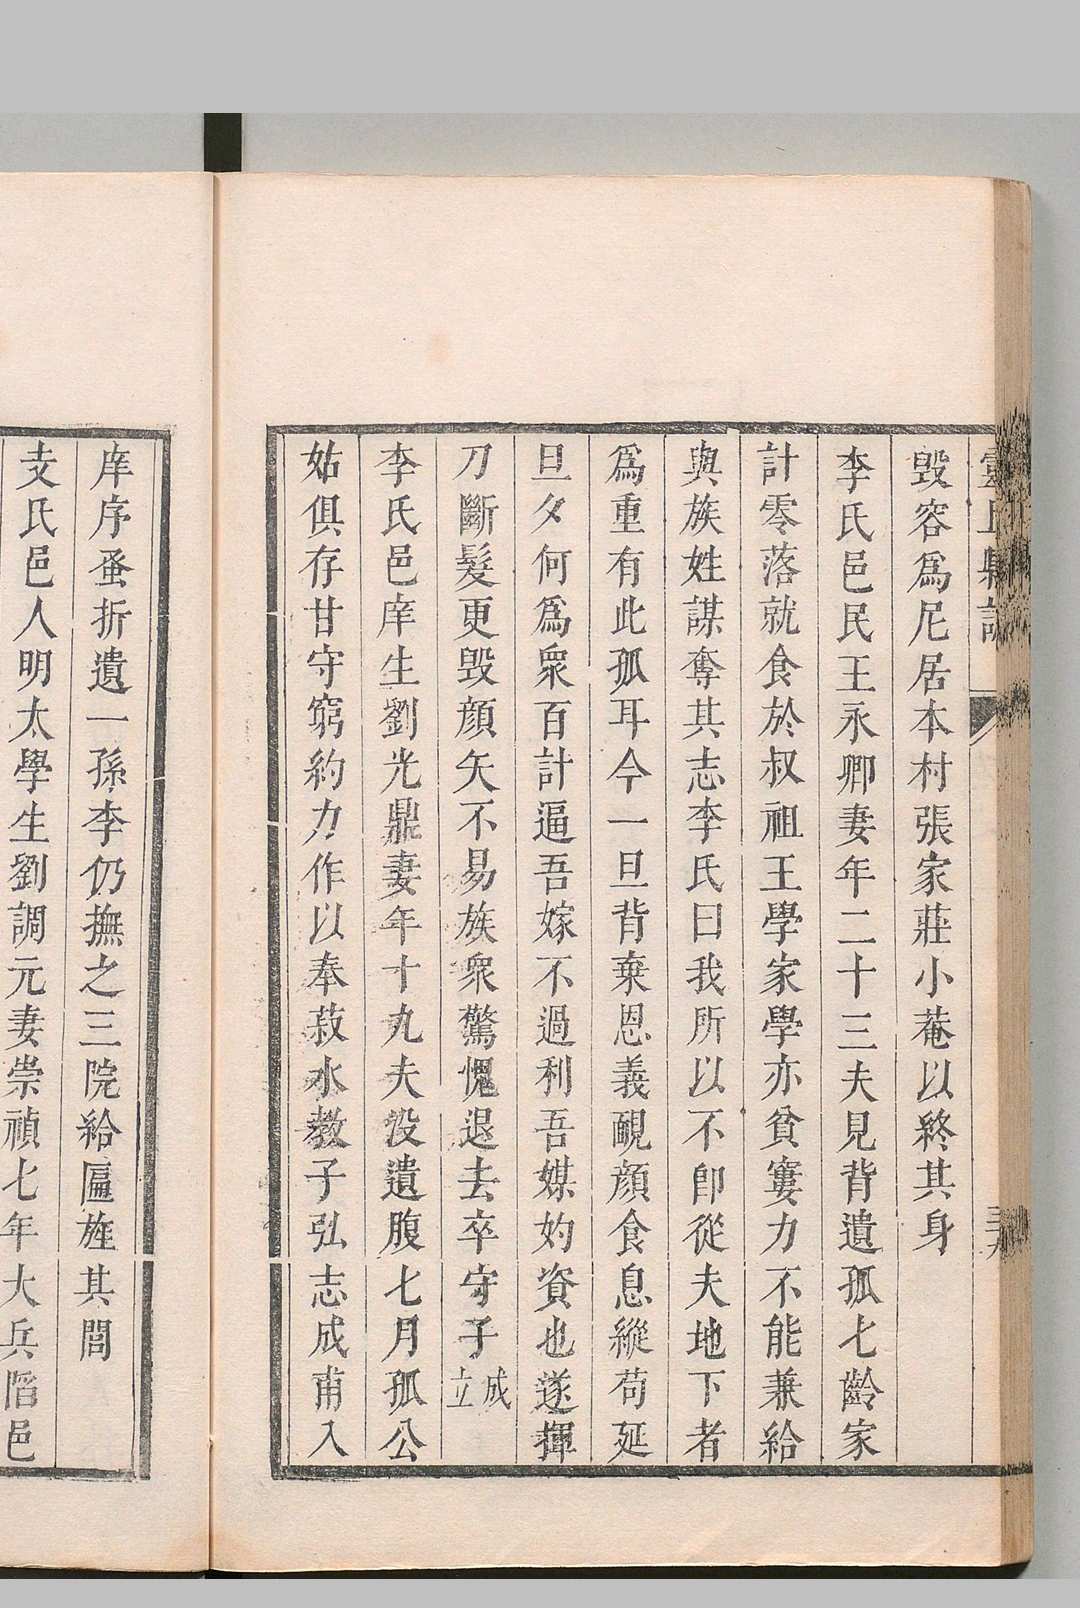 靈丘縣志
毀容為尼居本村張家莊小菴以終其身
李氏邑民王永卿妻年二十三夫見背遺孤七齡家
計零落就食於叔祖王學家學亦貧窶力不能兼給
與族姓謀奪其志李氏曰我所以不卽從夫地下者
爲重有此孤耳今一旦背棄恩義靦顔食息縱苟延
旦夕何爲衆百計逼吾嫁不過利吾媒妁資也遂揮
刀斷髮更毀顔矢不易族衆驚愧退去卒守子成立
李氏邑庠生劉光鼎妻年十九夫沒遺腹七月孤公
姑俱存甘守窮約力作以奉菽水教子弘志成甫入
庠序蚤折遺一孫李仍撫之三院給匾旌其閭
支氏邑人明太學生劉調元妻崇禎七年大兵陷邑